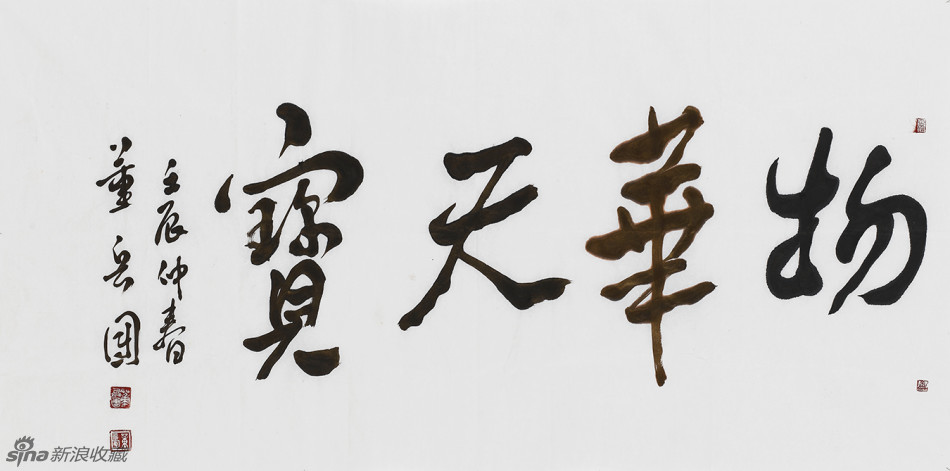 物華天寶
壬辰仲春
董
sina新浪收藏